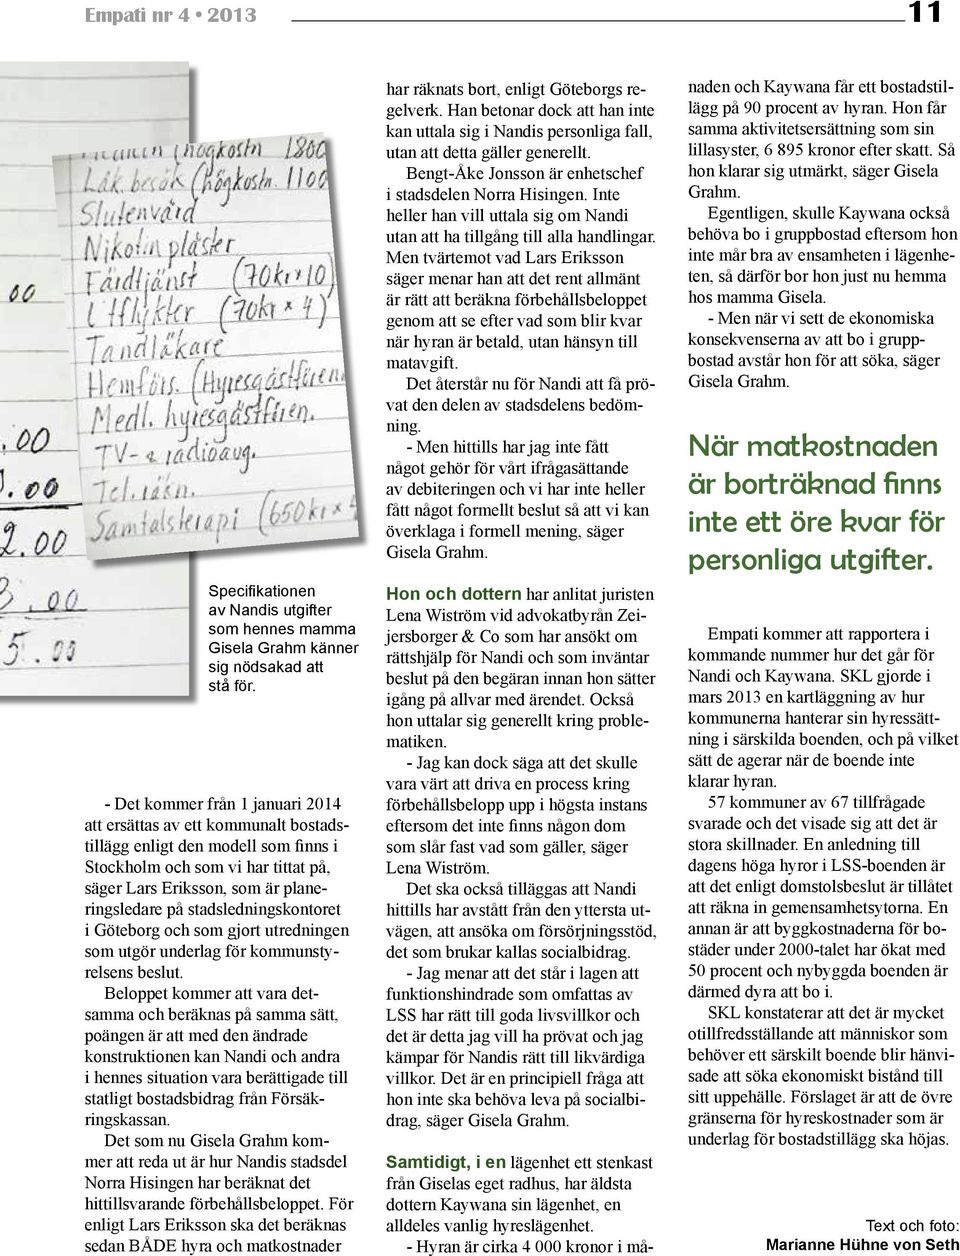 Empati nr 4 • 2013
11
(högkostn 1800
Läk. besök (högkostn. 1100
Slutenvård
Nikotinpläster
Färdtjänst (70kr×10)
Utflykter (70kr × 4)
Tandläkare
Hemförs. (Hyresgästfören
Medl. hyresgästfören.
TV- & radioavg.
Tel. räkn.
Samtalsterapi (650kr ×
.00
.00
.00
2.00
.00
5.00
Specifikationen
av Nandis utgifter
som hennes mamma
Gisela Grahm känner
sig nödsakad att
stå för.
- Det kommer från 1 januari 2014
att ersättas av ett kommunalt bostads-
tillägg enligt den modell som finns i
Stockholm och som vi har tittat på,
säger Lars Eriksson, som är plane-
ringsledare på stadsledningskontoret
i Göteborg och som gjort utredningen
som utgör underlag för kommunsty-
relsens beslut.
Beloppet kommer att vara det-
samma och beräknas på samma sätt,
poängen är att med den ändrade
konstruktionen kan Nandi och andra
i hennes situation vara berättigade till
statligt bostadsbidrag från Försäk-
ringskassan.
Det som nu Gisela Grahm kom-
mer att reda ut är hur Nandis stadsdel
Norra Hisingen har beräknat det
hittillsvarande förbehållsbeloppet. För
enligt Lars Eriksson ska det beräknas
sedan BÅDE hyra och matkostnader
har räknats bort, enligt Göteborgs re-
gelverk. Han betonar dock att han inte
kan uttala sig i Nandis personliga fall,
utan att detta gäller generellt.
Bengt-Åke Jonsson är enhetschef
i stadsdelen Norra Hisingen. Inte
heller han vill uttala sig om Nandi
utan att ha tillgång till alla handlingar.
Men tvärtemot vad Lars Eriksson
säger menar han att det rent allmänt
är rätt att beräkna förbehållsbeloppet
genom att se efter vad som blir kvar
när hyran är betald, utan hänsyn till
matavgift.
Det återstår nu för Nandi att få prö-
vat den delen av stadsdelens bedöm-
ning.
- Men hittills har jag inte fått
något gehör för vårt ifrågasättande
av debiteringen och vi har inte heller
fått något formellt beslut så att vi kan
överklaga i formell mening, säger
Gisela Grahm.
Hon och dottern har anlitat juristen
Lena Wiström vid advokatbyrån Zei-
jersborger & Co som har ansökt om
rättshjälp för Nandi och som inväntar
beslut på den begäran innan hon sätter
igång på allvar med ärendet. Också
hon uttalar sig generellt kring proble-
matiken.
- Jag kan dock säga att det skulle
vara värt att driva en process kring
förbehållsbelopp upp i högsta instans
eftersom det inte finns någon dom
som slår fast vad som gäller, säger
Lena Wiström.
Det ska också tilläggas att Nandi
hittills har avstått från den yttersta ut-
vägen, att ansöka om försörjningsstöd,
det som brukar kallas socialbidrag.
- Jag menar att det står i lagen att
funktionshindrade som omfattas av
LSS har rätt till goda livsvillkor och
det är detta jag vill ha prövat och jag
kämpar för Nandis rätt till likvärdiga
villkor. Det är en principiell fråga att
hon inte ska behöva leva på socialbi-
drag, säger Gisela Grahm.
Samtidigt, i en lägenhet ett stenkast
från Giselas eget radhus, har äldsta
dottern Kaywana sin lägenhet, en
alldeles vanlig hyreslägenhet.
- Hyran är cirka 4 000 kronor i må-
naden och Kaywana får ett bostadstil-
lägg på 90 procent av hyran. Hon får
samma aktivitetsersättning som sin
lillasyster, 6 895 kronor efter skatt. Så
hon klarar sig utmärkt, säger Gisela
Grahm.
Egentligen, skulle Kaywana också
behöva bo i gruppbostad eftersom hon
inte mår bra av ensamheten i lägenhe-
ten, så därför bor hon just nu hemma
hos mamma Gisela.
- Men när vi sett de ekonomiska
konsekvenserna av att bo i grupp-
bostad avstår hon för att söka, säger
Gisela Grahm.
När matkostnaden
är borträknad finns
inte ett öre kvar för
personliga utgifter.
Empati kommer att rapportera i
kommande nummer hur det går för
Nandi och Kaywana. SKL gjorde i
mars 2013 en kartläggning av hur
kommunerna hanterar sin hyressätt-
ning i särskilda boenden, och på vilket
sätt de agerar när de boende inte
klarar hyran.
57 kommuner av 67 tillfrågade
svarade och det visade sig att det är
stora skillnader. En anledning till
dagens höga hyror i LSS-boenden är
att det enligt domstolsbeslut är tillåtet
att räkna in gemensamhetsytorna. En
annan är att byggkostnaderna för bo-
städer under 2000-talet har ökat med
50 procent och nybyggda boenden är
därmed dyra att bo i.
SKL konstaterar att det är mycket
otillfredsställande att människor som
behöver ett särskilt boende blir hänvi-
sade att söka ekonomiskt bistånd till
sitt uppehälle. Förslaget är att de övre
gränserna för hyreskostnader som är
underlag för bostadstillägg ska höjas.
Text och foto:
Marianne Hühne von Seth